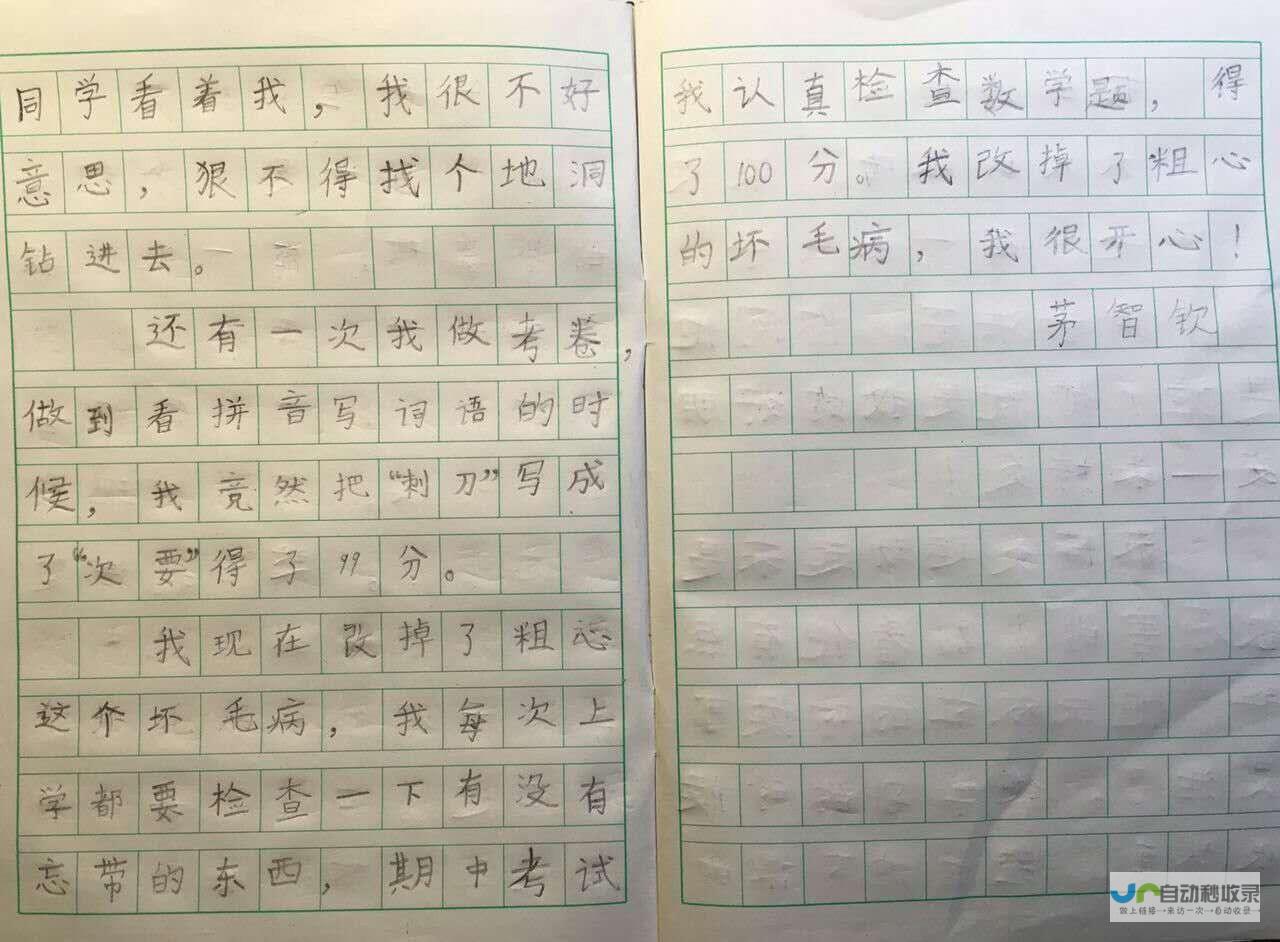 同学看着我，我很不好
意思，狠不得找个地洞
钻进去。
还有一次我做考卷，
做到看拼音写词语的时
候，我竟然把“刺刀”写成
了“次要”得了99分。
我现在改掉了粗心
这个坏毛病，我每次上
学都要检查一下有没有
忘带的东西，期中考试
我认真检查数学题，得
了100分。我改掉了粗心
的坏毛病，我很开心！
茅智钦
自动秒收录
做上链接→来访一次→自动收录